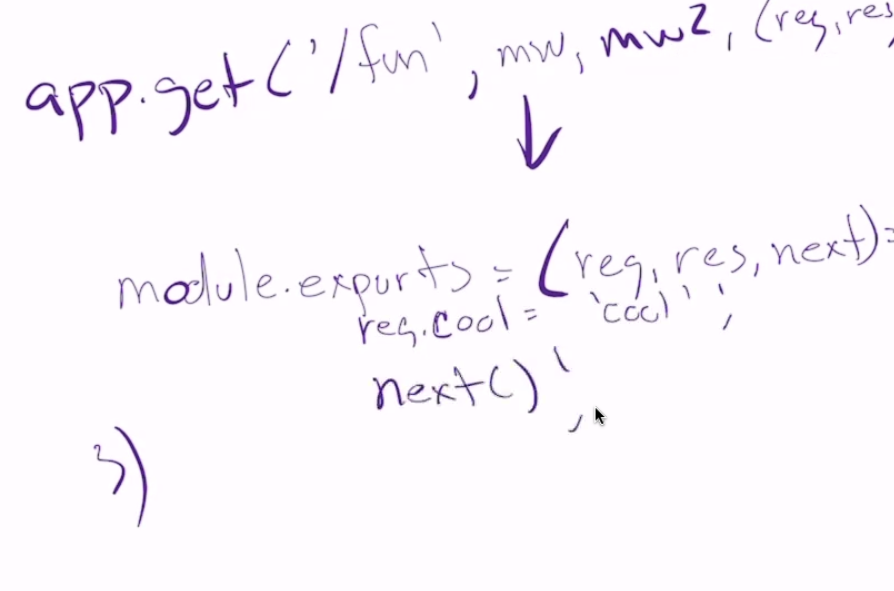 app.get('/fun', mw, mw2, (req, res
module.exports = (req, res, next) =
req.cool = 'cool';
next();
})